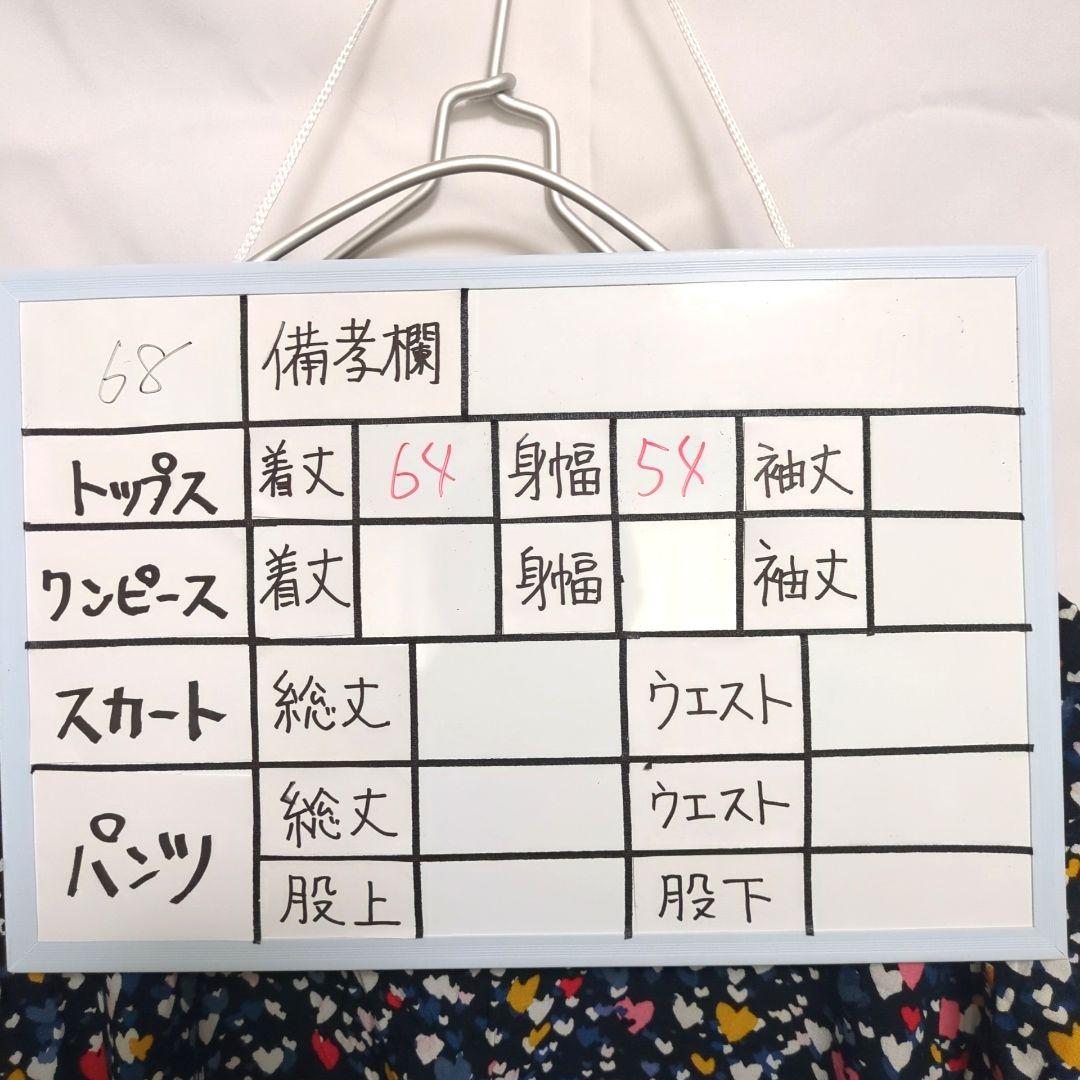 68 備考欄
トップス 着丈 64 身幅 54 袖丈
ワンピース 着丈 身幅 袖丈
スカート 総丈 ウエスト
パンツ 総丈 ウエスト
股上 股下